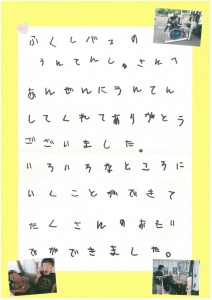 ふくしバスの
うんてんしゅさんへ
あんぜんにうんてん
してくれてありがとう
ございました。
いろいろなところに
いくことができて
たくさんのおもい
でができました。